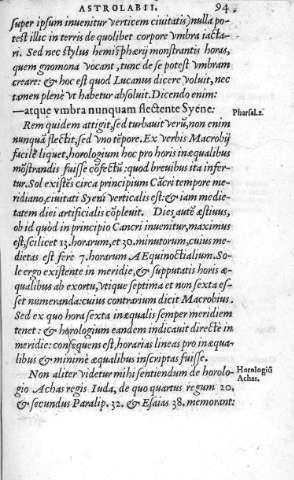 ASTROLABII. 94
super ipsum inuenitur verticem ciuitatis) nulla po-
test illic in terris de quolibet corpore vmbra iacta-
ri. Sed nec stylus hemisphærij monstrantis horas,
quem gnomona vocant, tunc de se potest vmbram
creare: & hoc est quod Lucanus dicere voluit, nec
tamen plenè vt habetur absoluit. Dicendo enim:
—atque vmbra nunquam flectente Syëne: Pharsal.2.
Rem quidem attigit, sed turbauit verũ, non enim
nunquã flectit, sed vno tẽpore. Ex verbis Macrobij
facilè liquet, horologium hoc pro horis inæqualibus
mõstrandis fuisse cõfectũ: quod breuibus ita infer-
tur. Sol existẽs circa principium Cãcri tempore me-
ridiano, ciuitati Syeni verticalis est: & iam medie-
tatem diei artificialis cõpleuit. Dies autẽ æstiuus,
ob id quòd in principio Cancri inuenitur, maximus
est, scilicet 13. horarum, et 30. minutorum, cuius me-
dietas est fere 7. horarum Æquinoctialium. So-
le ergo existente in meridie, & supputatis horis æ-
qualibus ab exortu, vtique septima et non sexta es-
set numeranda: cuius contrarium dicit Macrobius.
Sed ex quo hora sexta inæqualis semper meridiem
tenet: & horologium eandem indicauit directè in
meridie: consequens est, horarias lineas pro inæqua-
libus & minimè æqualibus inscriptas fuisse.
Non aliter videtur mihi sentiendum de horolo- Horologiũ
gio Achas regis Iuda, de quo quartus regum 20. Achas.
& secundus Paralip. 32. & Esaias 38. memorant: